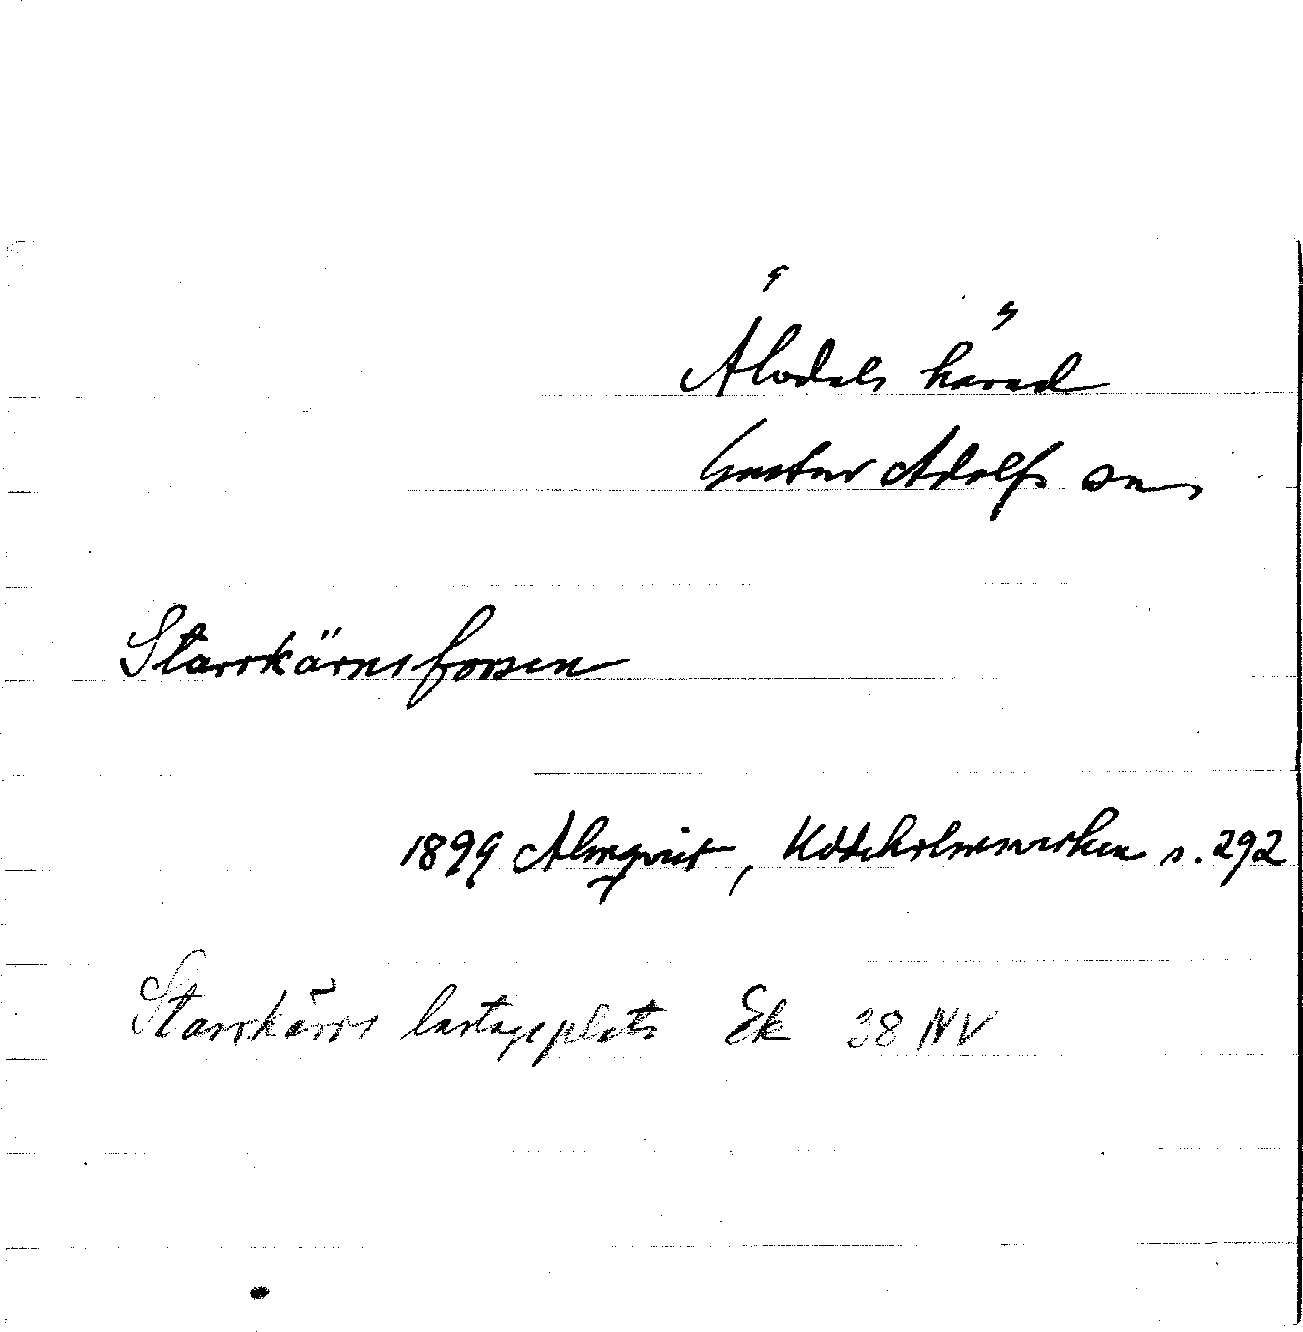 Älvdals härad
Gustav Adolfs sn
Starrkärnsforsen
1899 Almqvist, Uddeholmsverken s. 292
Starrkärns lastageplats Ek 38 NV